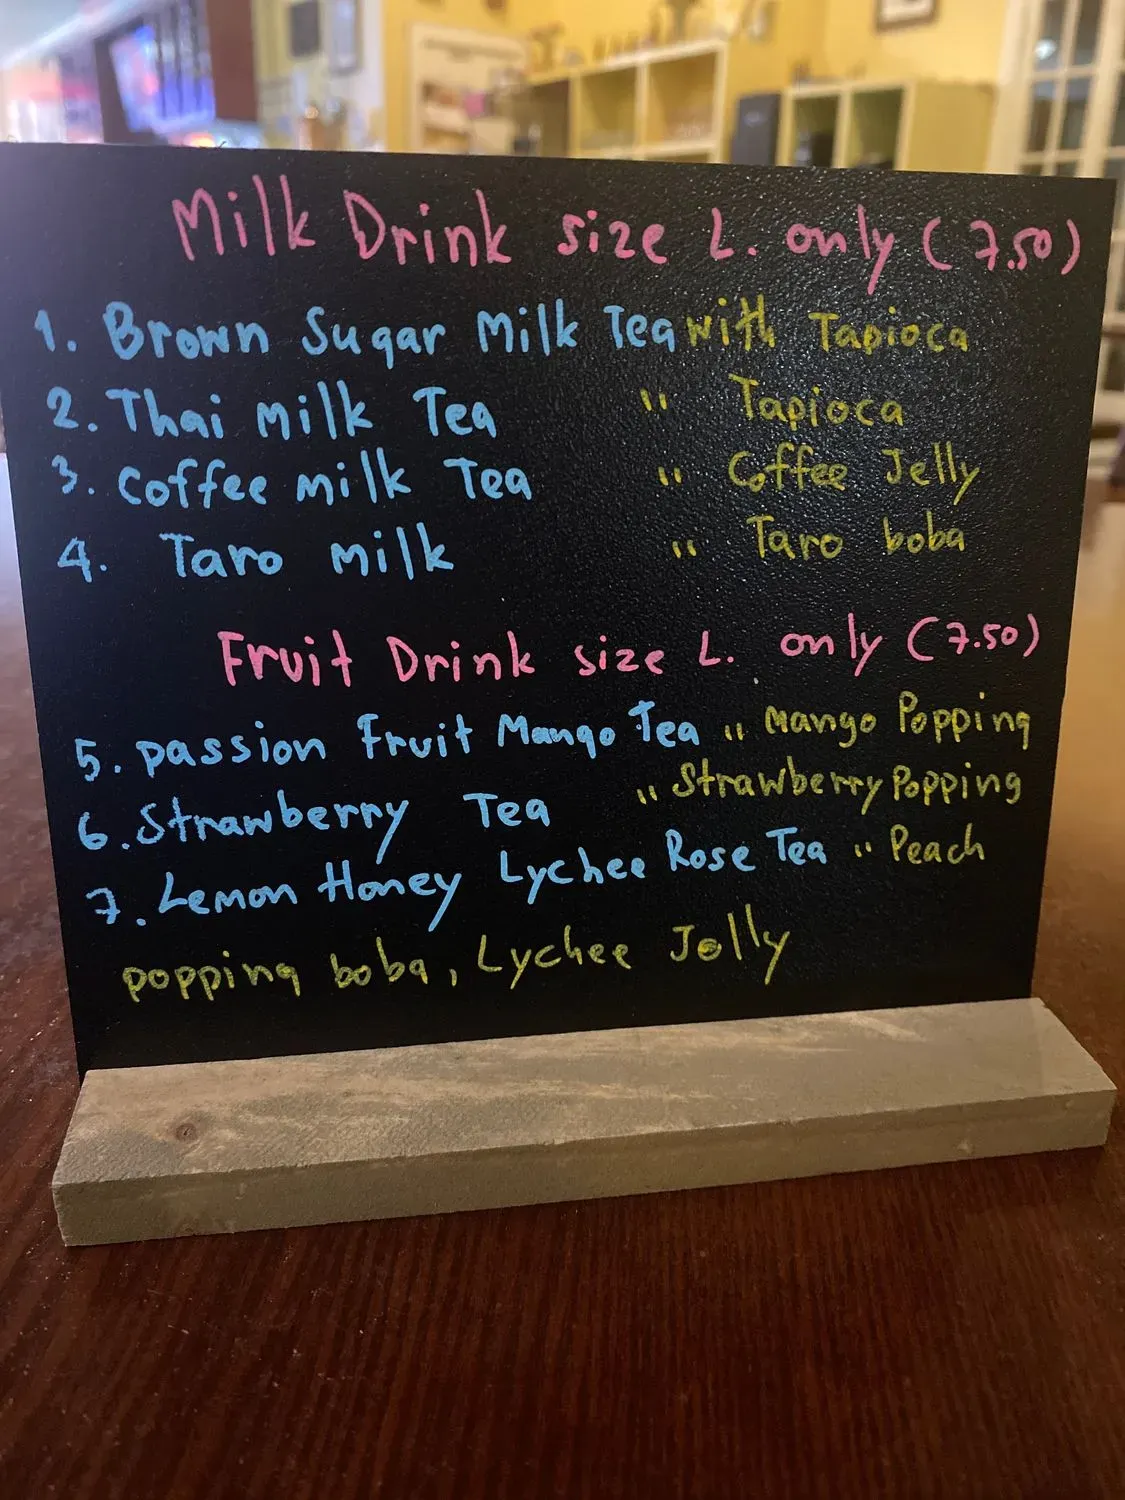 Milk Drink size L. only (7.50)
1. Brown Sugar Milk Tea with Tapioca
2. Thai Milk Tea " Tapioca
3. Coffee Milk Tea " Coffee Jelly
4. Taro Milk " Taro boba
Fruit Drink size L. only (7.50)
5. passion Fruit Mango Tea " Mango Popping
6. Strawberry Tea " Strawberry Popping
7. Lemon Honey Lychee Rose Tea " Peach
popping boba, Lychee Jelly